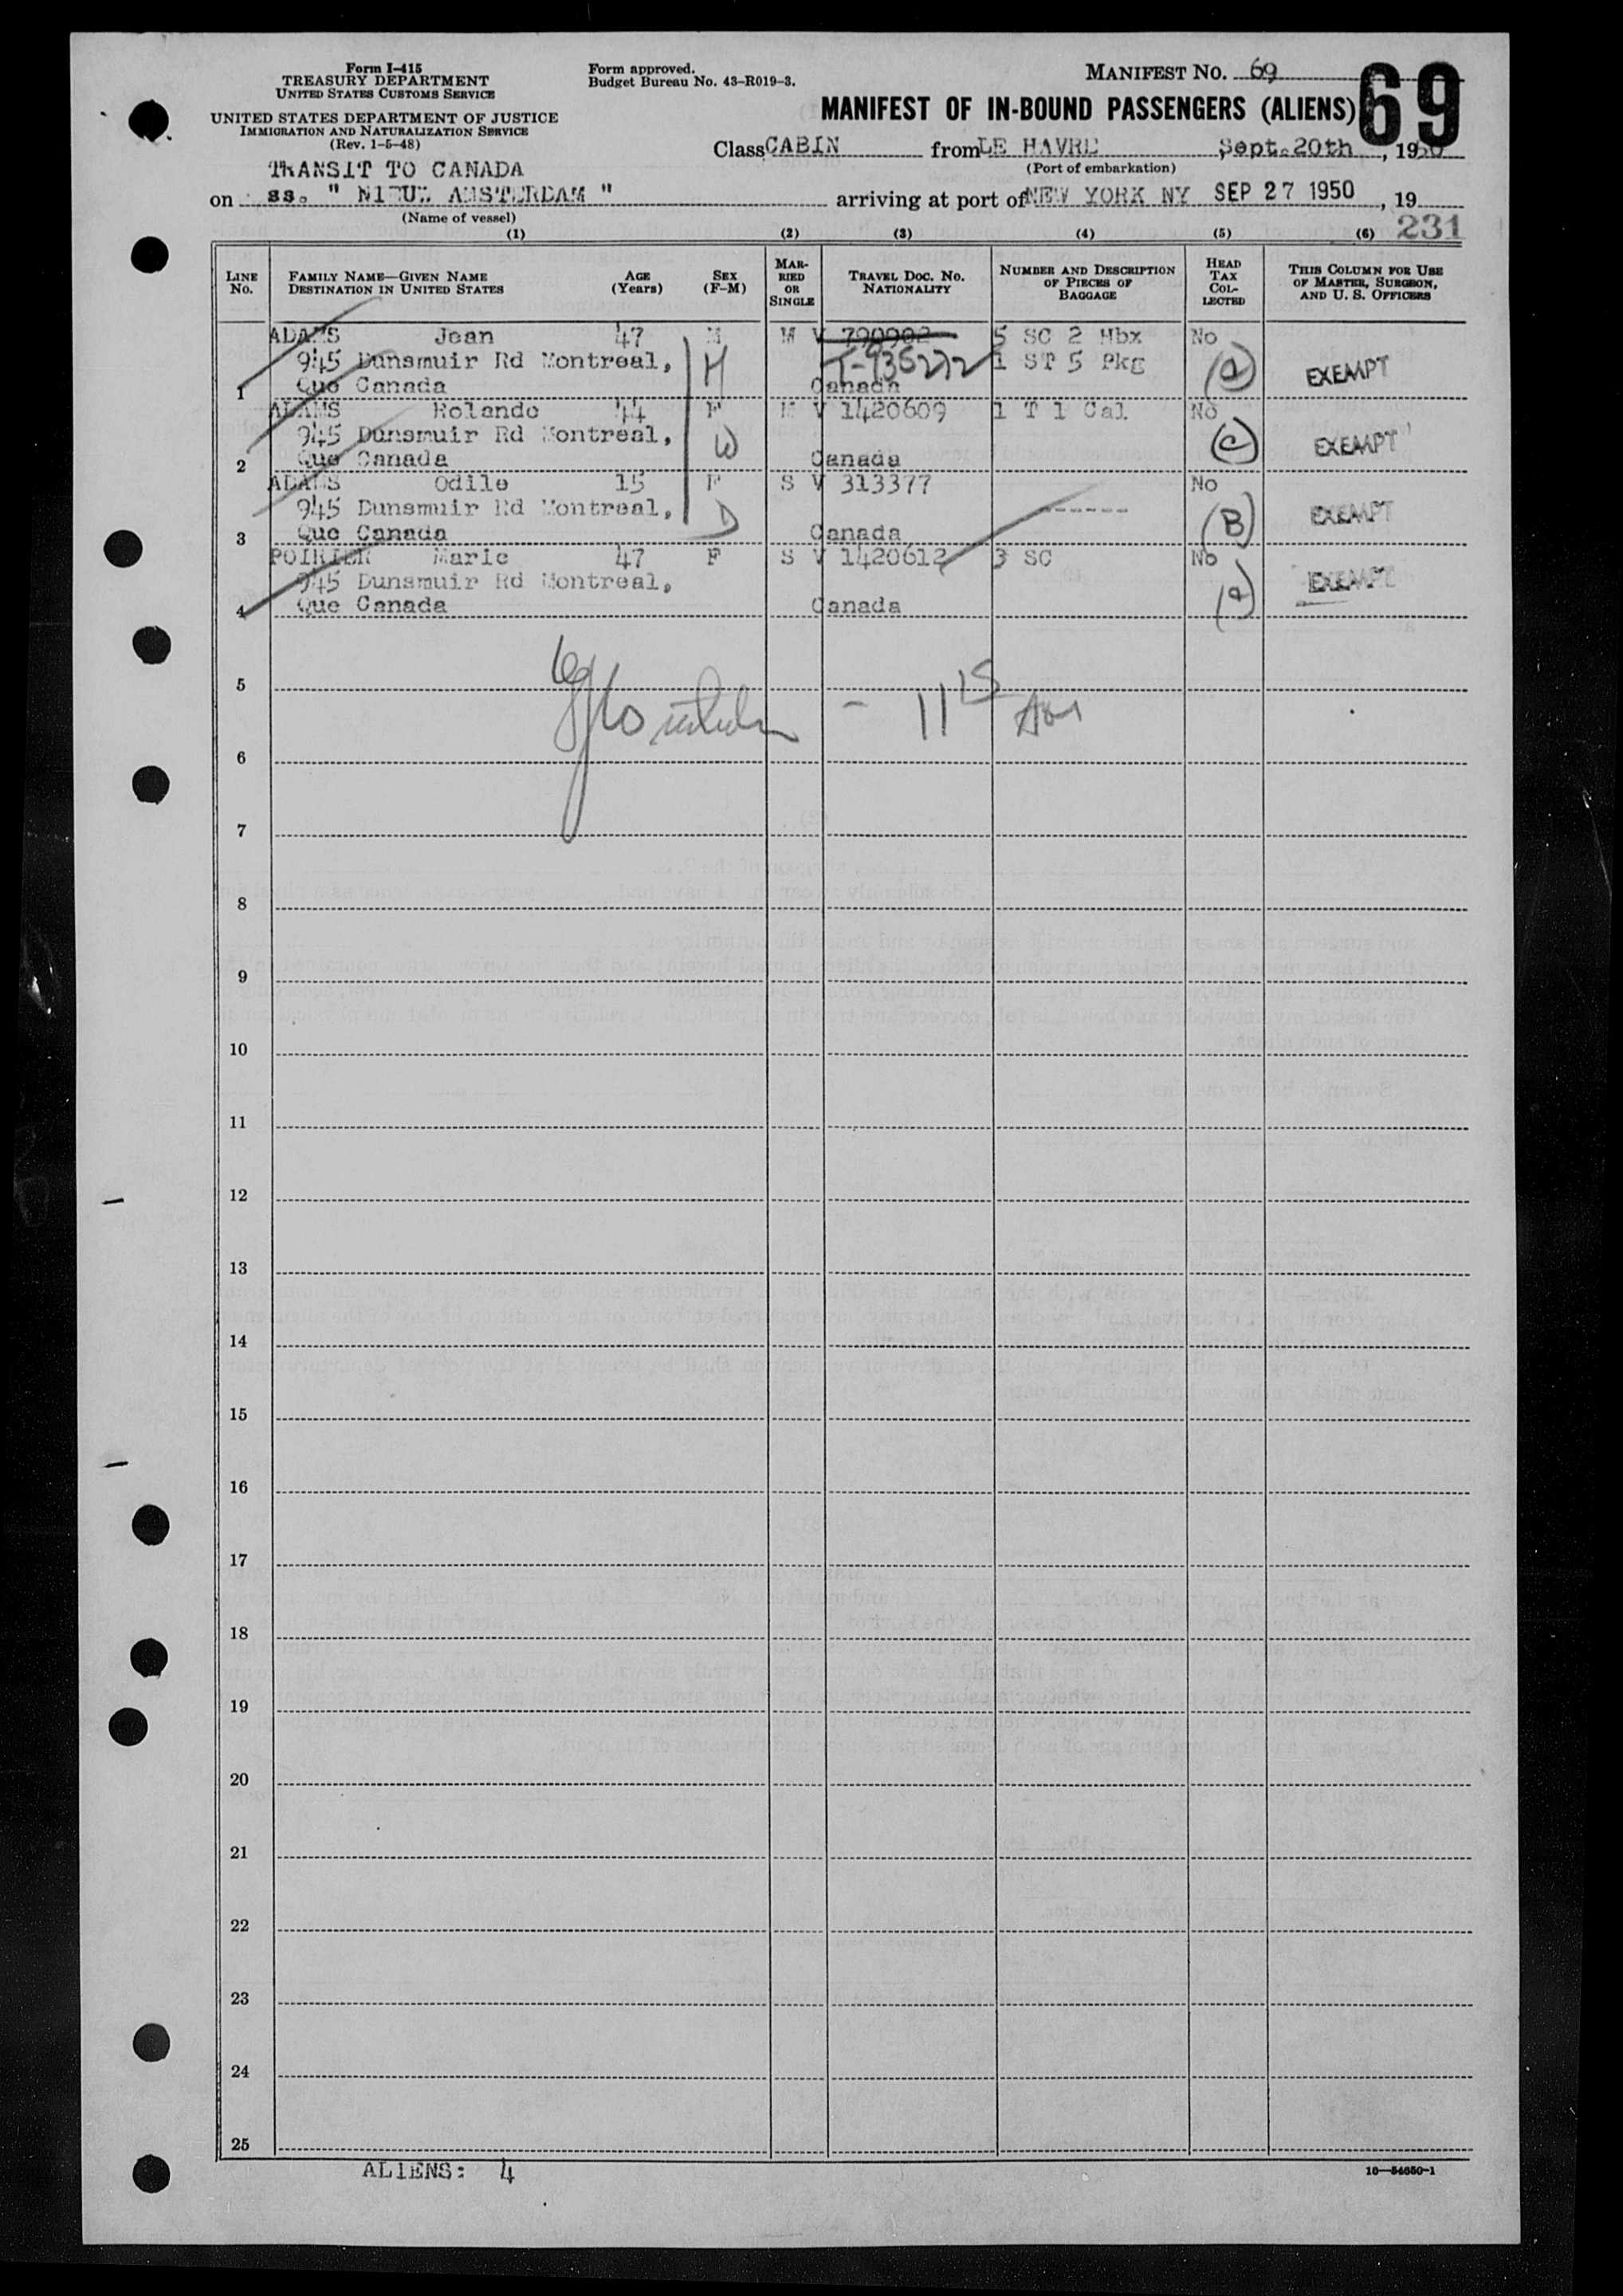 Form I-415
TREASURY DEPARTMENT
UNITED STATES CUSTOMS SERVICE
UNITED STATES DEPARTMENT OF JUSTICE
IMMIGRATION AND NATURALIZATION SERVICE
(Rev. 1-5-48)
Form approved.
Budget Bureau No. 43-R019-3.
MANIFEST NO. 69
69
MANIFEST OF IN-BOUND PASSENGERS (ALIENS)
Class CABIN from LE HAVRE Sept. 20th, 1950
(Port of embarkation)
TRANSIT TO CANADA
on ss. " NIEUW AMSTERDAM " arriving at port of NEW YORK NY SEP 27 1950, 19
(Name of vessel)
231
(1) (2) (3) (4) (5) (6)
LINE NO. FAMILY NAME—GIVEN NAME DESTINATION IN UNITED STATES AGE (Years) SEX (F-M) MARRIED OR SINGLE TRAVEL DOC. NO. NATIONALITY NUMBER AND DESCRIPTION OF PIECES OF BAGGAGE HEAD TAX COLLECTED THIS COLUMN FOR USE OF MASTER, SURGEON, AND U. S. OFFICERS
ADAMS Jean 47 M M V 790902 5 SC 2 Hbx No
945 Dunsmuir Rd Montreal, H T-936272 1 ST 5 Pkg EXEMPT
1 Que Canada Canada
ADAMS Rolande 44 F M V 1420609 1 T 1 Cal No
945 Dunsmuir Rd Montreal, W (C) EXEMPT
2 Que Canada Canada
ADAMS Odile 15 F S V 313377 No
945 Dunsmuir Rd Montreal, D ------ (B) EXEMPT
3 Que Canada Canada
POIRIER Marie 47 F S V 1420612 3 SC No
945 Dunsmuir Rd Montreal, EXEMPT
4 Que Canada Canada
5
- 11 15 AM
6
7
8
9
10
11
12
13
14
15
16
17
18
19
20
21
22
23
24
25
ALIENS: 4
16—54650-1